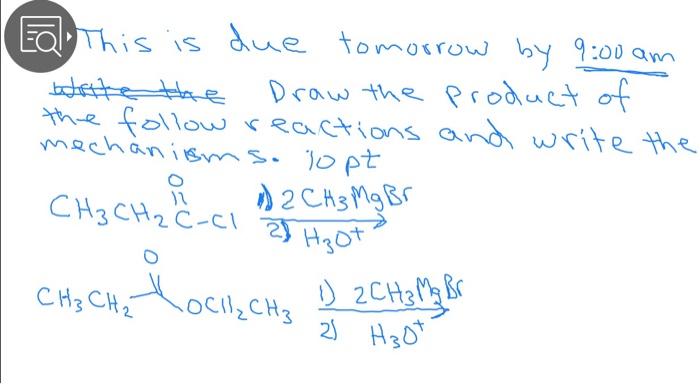 This is due tomorrow by 9:00 am
Write the Draw the product of
the follow reactions and write the
mechanisms. 10 pt
O
CH3CH2C-Cl 1) 2CH3MgBr
2) H3O+
O
CH3CH2 OCH2CH3 1) 2CH3MgBr
2) H3O+